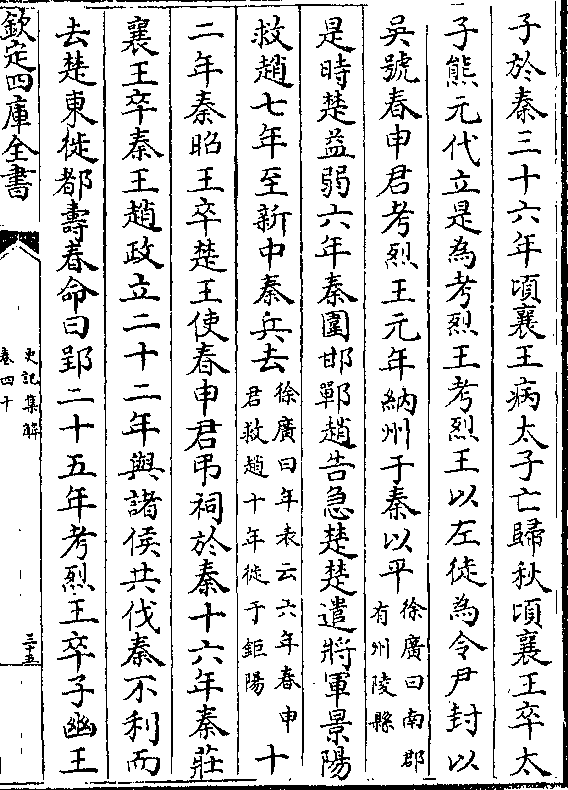 子於秦三十六年頃襄王病太子亡歸秋頃襄王卒太
子熊元代立是為考烈王考烈王以左徒為令尹封以
吳號春申君考烈王元年納州于秦以平徐廣曰南郡有州陵縣
是時楚益弱六年秦圍邯鄲趙告急楚楚遣將軍景陽
救趙七年至新中秦兵去徐廣曰年表云六年春申君救趙十年徙于鉅陽十
二年秦昭王卒楚王使春申君弔祠於秦十六年秦莊
襄王卒秦王趙政立二十二年與諸侯共伐秦不利而
去楚東徙都壽春命曰郢二十五年考烈王卒子幽王
欽定四庫全書
史記集解
卷四十
三十五